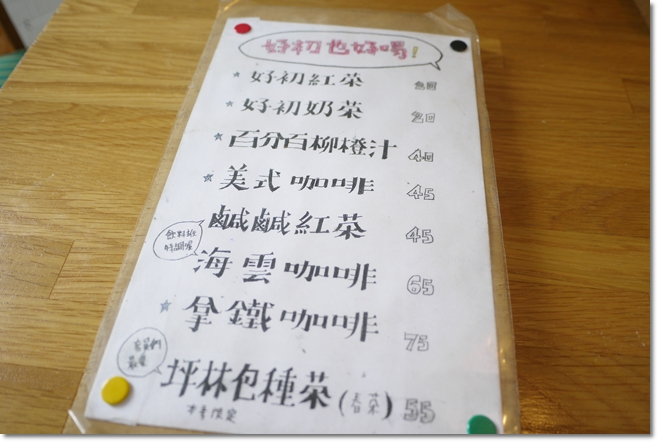 好初也好喝!
好初紅茶 20
好初奶茶 20
百分百柳橙汁 40
美式咖啡 45
鹹鹹紅茶 45
飲料班
特調喔
海雲咖啡 65
拿鐵咖啡 75
坪林包種茶(春茶) 55
本季限定